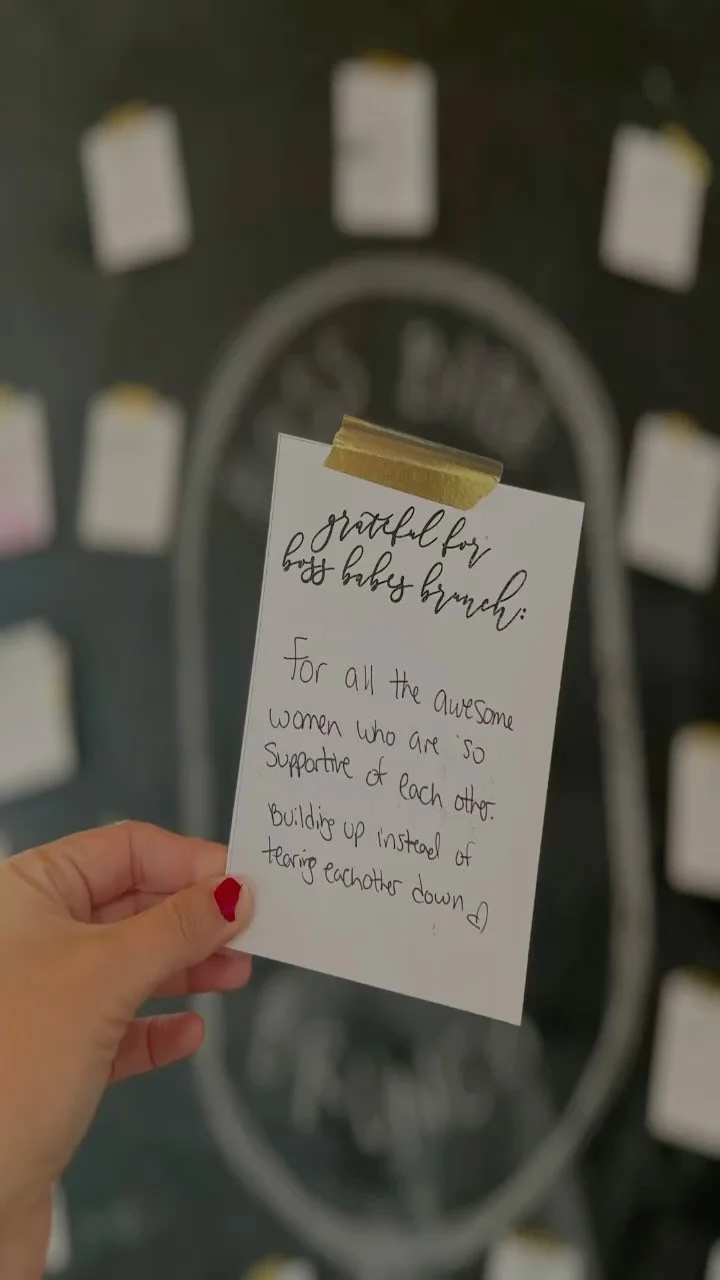 grateful for
boss babes brunch:
For all the awesome
women who are so
supportive of each other.
Building up instead of
tearing eachother down